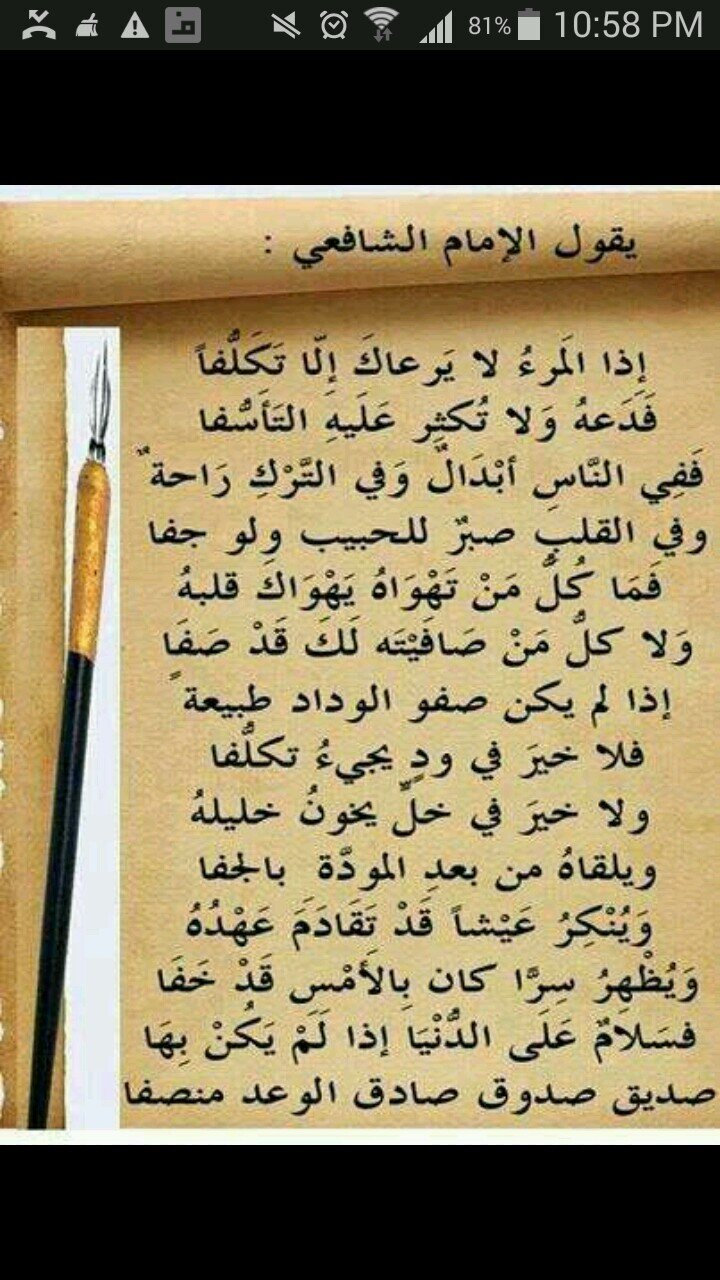 81% 10:58 PM
يقول الإمام الشافعي :
إِذا المَرءُ لا يَرعاكَ إِلّا تَكَلُّفاً
فَدَعهُ وَلا تُكثِر عَلَيهِ التَأَسُّفا
فَفِي النَّاسِ أبْدَالٌ وَفي التَّرْكِ رَاحة ٌ
وفي القلبِ صبرٌ للحبيب ولو جفا
فَمَا كُلُّ مَنْ تَهْوَاهُ يَهْوَاكَ قلبهُ
وَلا كلُّ مَنْ صَافَيْتَه لَكَ قَدْ صَفَا
إذا لم يكن صفو الوداد طبيعة ً
فلا خيرَ في ودٍ يجيءُ تكلُّفا
ولا خيرَ في خلٍّ يخونُ خليلهُ
ويلقاهُ من بعدِ المودَّة بالجفا
وَيُنْكِرُ عَيْشاً قَدْ تَقَادَمَ عَهْدُهُ
وَيُظْهِرُ سِرًّا كان بِالأَمْسِ قَدْ خَفَا
فسَلامٌ عَلَى الدُّنْيَا إذا لَمْ يَكُنْ بِهَا
صديق صدوق صادق الوعد منصفا